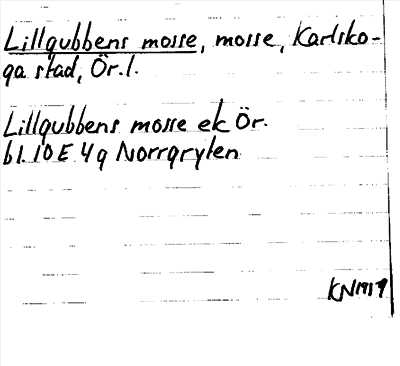 Lillgubbens mosse, mosse, Karlsko-
ga stad, Ör. l.
Lillgubbens mosse ek Ör.
bl. 10 E 4 g Norrgryten